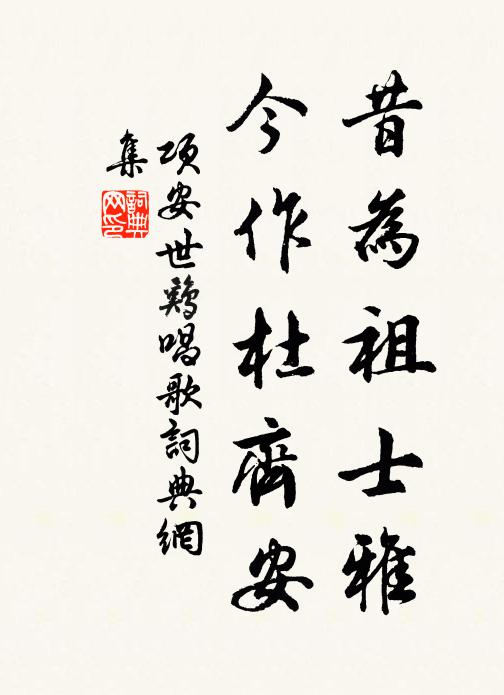 昔為祖士雅
今作杜齊安
項安世鷄唱歌詞典網
集
詞典
网印